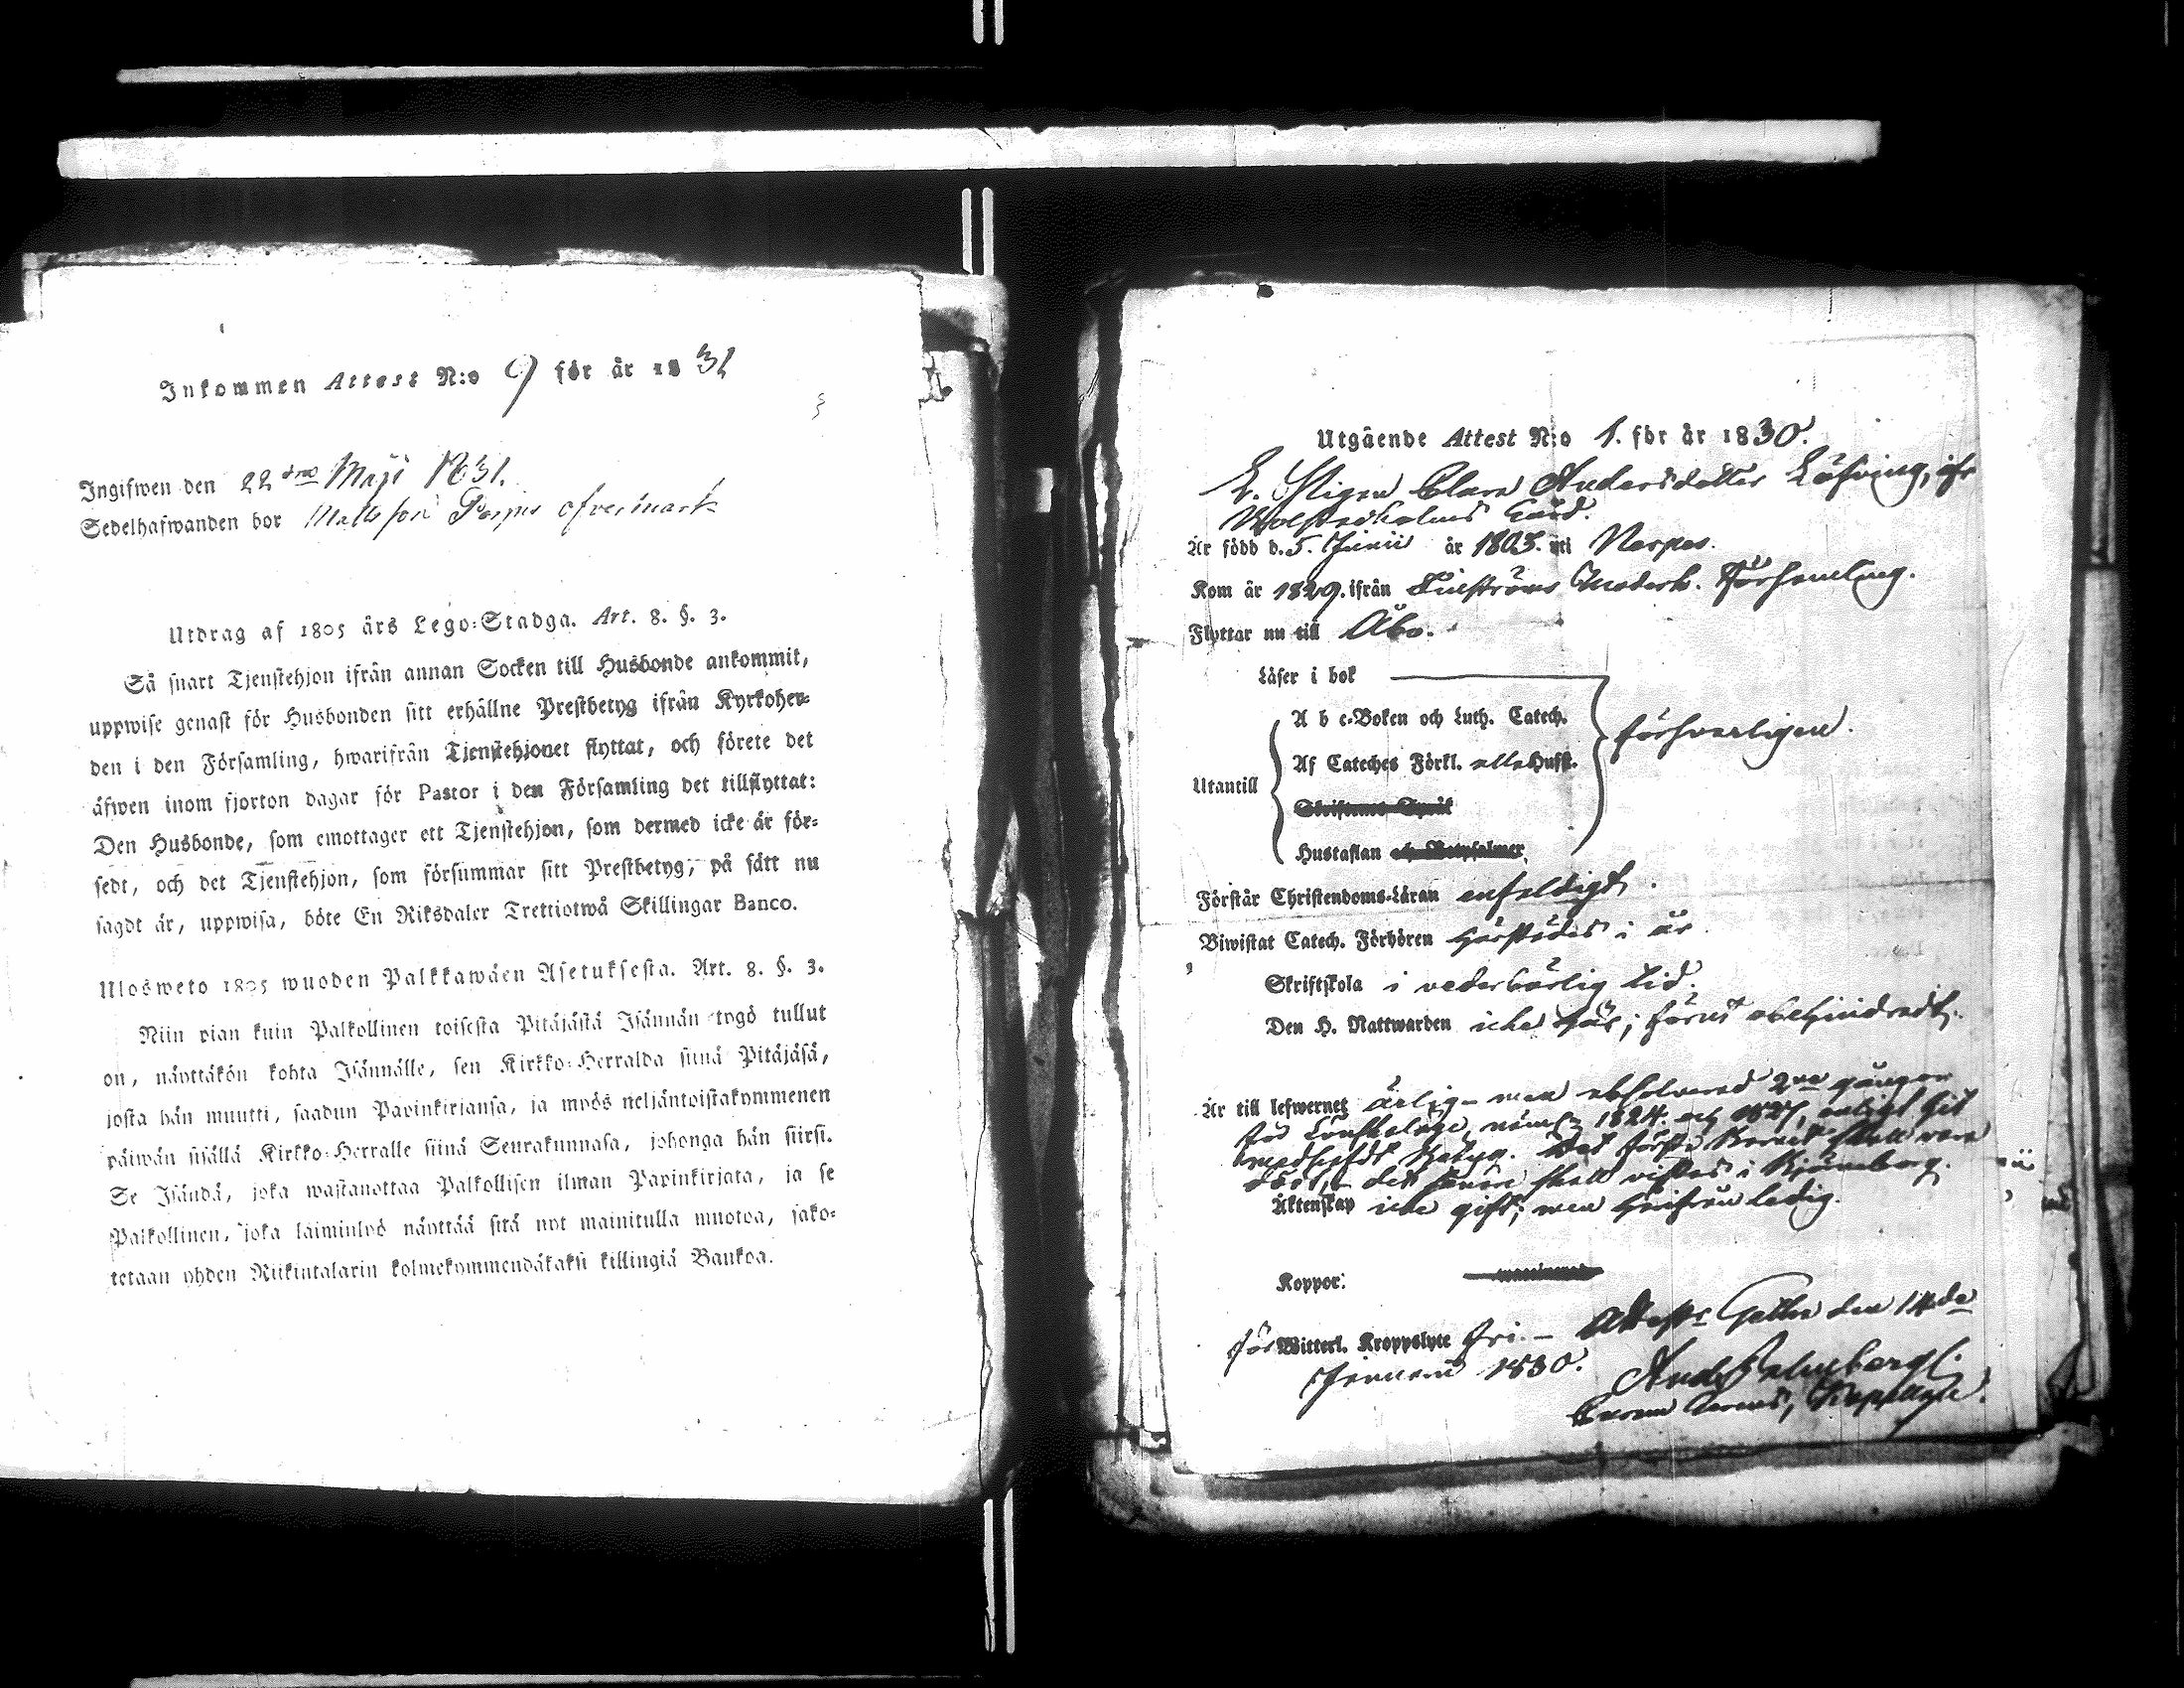 Inkommen Attest N:o 9 för år 1831
Ingifwen den 22dra Maji 1831.
Sedelhafwanden bor
Utdrag af 1805 års Lego-Stadga. Art. 8. §. 3.
Så snart Tjenstehjon ifrån annan Socken till Husbonde ankommit,
uppwise genast för Husbonden sitt erhållne Prestbetyg ifrån Kyrkoher-
den i den Församling, hwarifrån Tjenstehjonet flyttat, och förete det
äfwen inom fjorton dagar för Pastor i den Församling det tillflyttat:
Den Husbonde, som emottager ett Tjenstehjon, som dermed icke är för-
sedt, och det Tjenstehjon, som försummar sitt Prestbetyg, på sätt nu
sagdt är, uppwisa, böte En Riksdaler Trettiotwå Skillingar Banco.
Ulosweto 1805 wuoden Palkkawäen Asetuksesta. Art. 8. §. 3.
Niin pian kuin Palkollinen toisesta Pitäjästä Isännän tygö tullut
on, näyttäkön kohta Isännälle, sen Kirkko-Herralda siinä Pitäjäsä,
josta hän muutti, saadun Papinkirjansa, ja myös neljäntoistakymmenen
päiwän sisällä Kirkko-Herralle siinä Seurakunnasa, johonga hän siirsi.
Se Isändä, joka wastanottaa Palkollisen ilman Papinkirjata, ja se
Palkollinen, joka laiminlyö näyttää sitä nyt mainitulla muotoa, sako-
tetaan yhden Riikintalarin kolmekymmendäkaksi killingiä Bankoa.
Utgående Attest N:o 1. för år 1830.
Pigan Clara Andersdotter Löfving, ifr
Gård.
Är född d. 5. Junii år 1803. uti Nerpes.
Kom år 1829. ifrån Moderk. Församling.
Flyttar nu till Åbo.
Läser i bok
A b c-Boken och Luth. Catech.
försvarligen.
Af Cateches Förkl. alla Hufst.
Utantill
Skriftenes Språk
Hustaflan och Botpsalmer
Förstår Christendoms-Läran enfaldigt.
Biwistat Catech. Förhören härstädes i år.
Skriftskola i vederbörlig tid.
Den H. Nattwarden icke här; förut obehindradt.
Är till lefwernet ärlig - men absolverad 2ne gånger
för Lönskaläge, näml. 1824. och 1827, enligt hit
medhafdt Betyg. Det första Barnet skall vara
dödt, det senare skall vistas i Björneborg.
Äktenskap icke gift; men hinfrån ledig.
Koppor:
för Witterl. Kroppslyte fri. — Attest. den 14de
Januarii 1830.